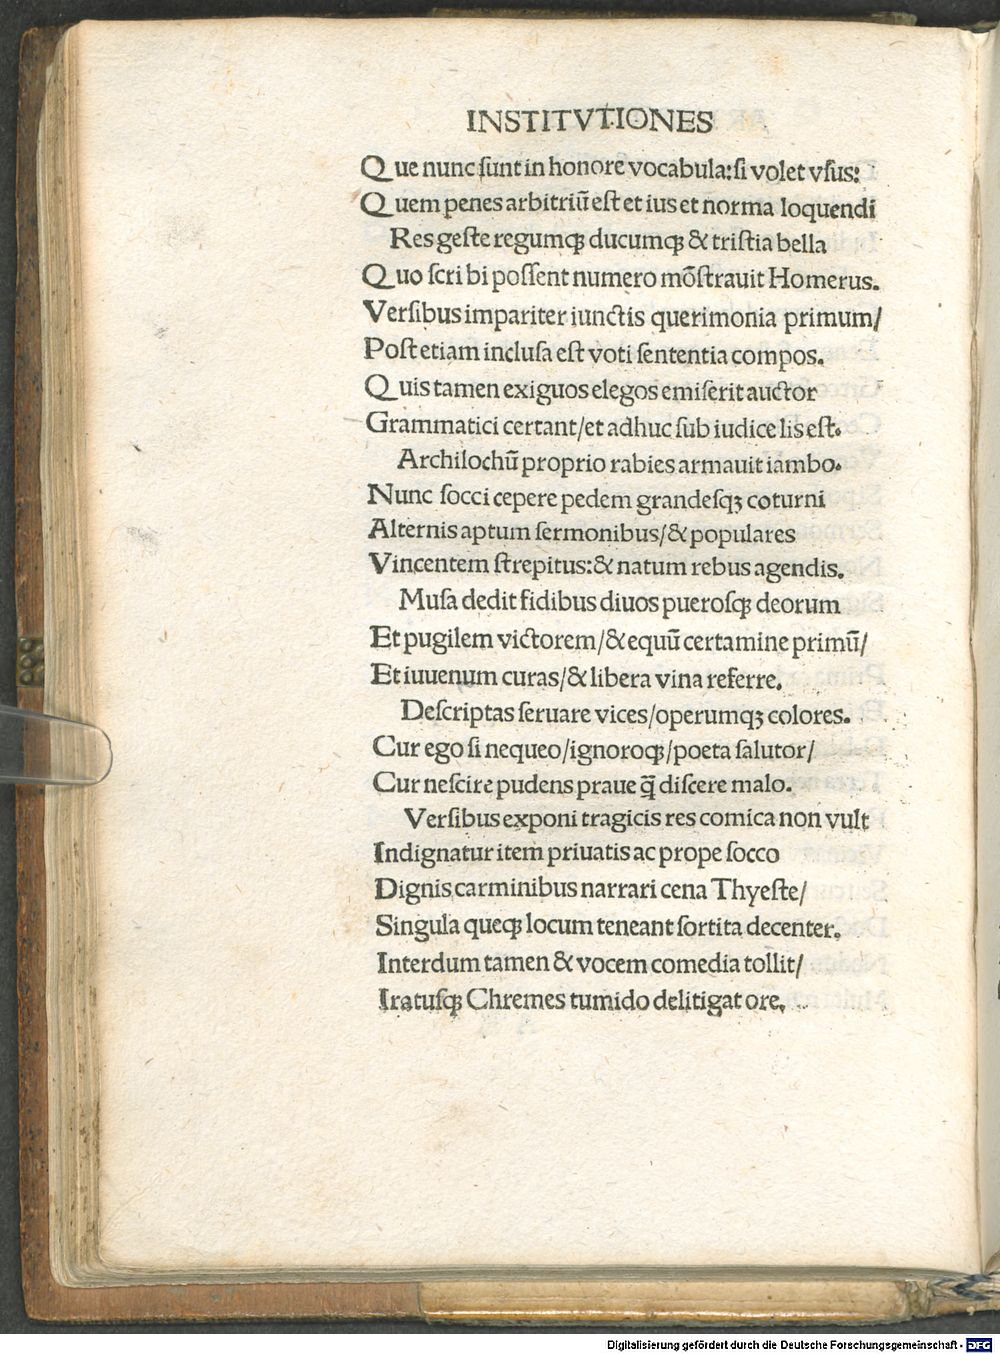 INSTITVTIONES
Que nunc ſunt in honore vocabula: ſi volet vſus:
Quem penes arbitriū eſt et ius et norma loquendi
Res geſte regumqꝫ ducumqꝫ & triſtia bella
Quo ſcri bi poſſent numero mōſtrauit Homerus.
Verſibus impariter iunctis querimonia primum/
Poſt etiam incluſa eſt voti ſententia compos.
Quis tamen exiguos elegos emiſerit auctor
Grammatici certant/et adhuc ſub iudice lis eſt.
Archilochū proprio rabies armauit iambo.
Nunc ſocci cepere pedem grandeſqꝫ coturni
Alternis aptum ſermonibus/& populares
Vincentem ſtrepitus:& natum rebus agendis.
Muſa dedit fidibus diuos pueroſqꝫ deorum
Et pugilem victorem/& equū certamine primū/
Et iuuenum curas/& libera vina referre.
Deſcriptas ſeruare vices/operumqꝫ colores.
Cur ego ſi nequeo/ignoroqꝫ/poeta ſalutor/
Cur neſcire pudens praue q̄ꝫ diſcere malo.
Verſibus exponi tragicis res comica non vult
Indignatur item priuatis ac prope ſocco
Dignis carminibus narrari cena Thyeſte/
Singula queqꝫ locum teneant ſortita decenter.
Interdum tamen & vocem comedia tollit/
Iratuſqꝫ Chremes tumido delitigat ore.
Digitalisierung gefördert durch die Deutsche Forschungsgemeinschaft - DFG